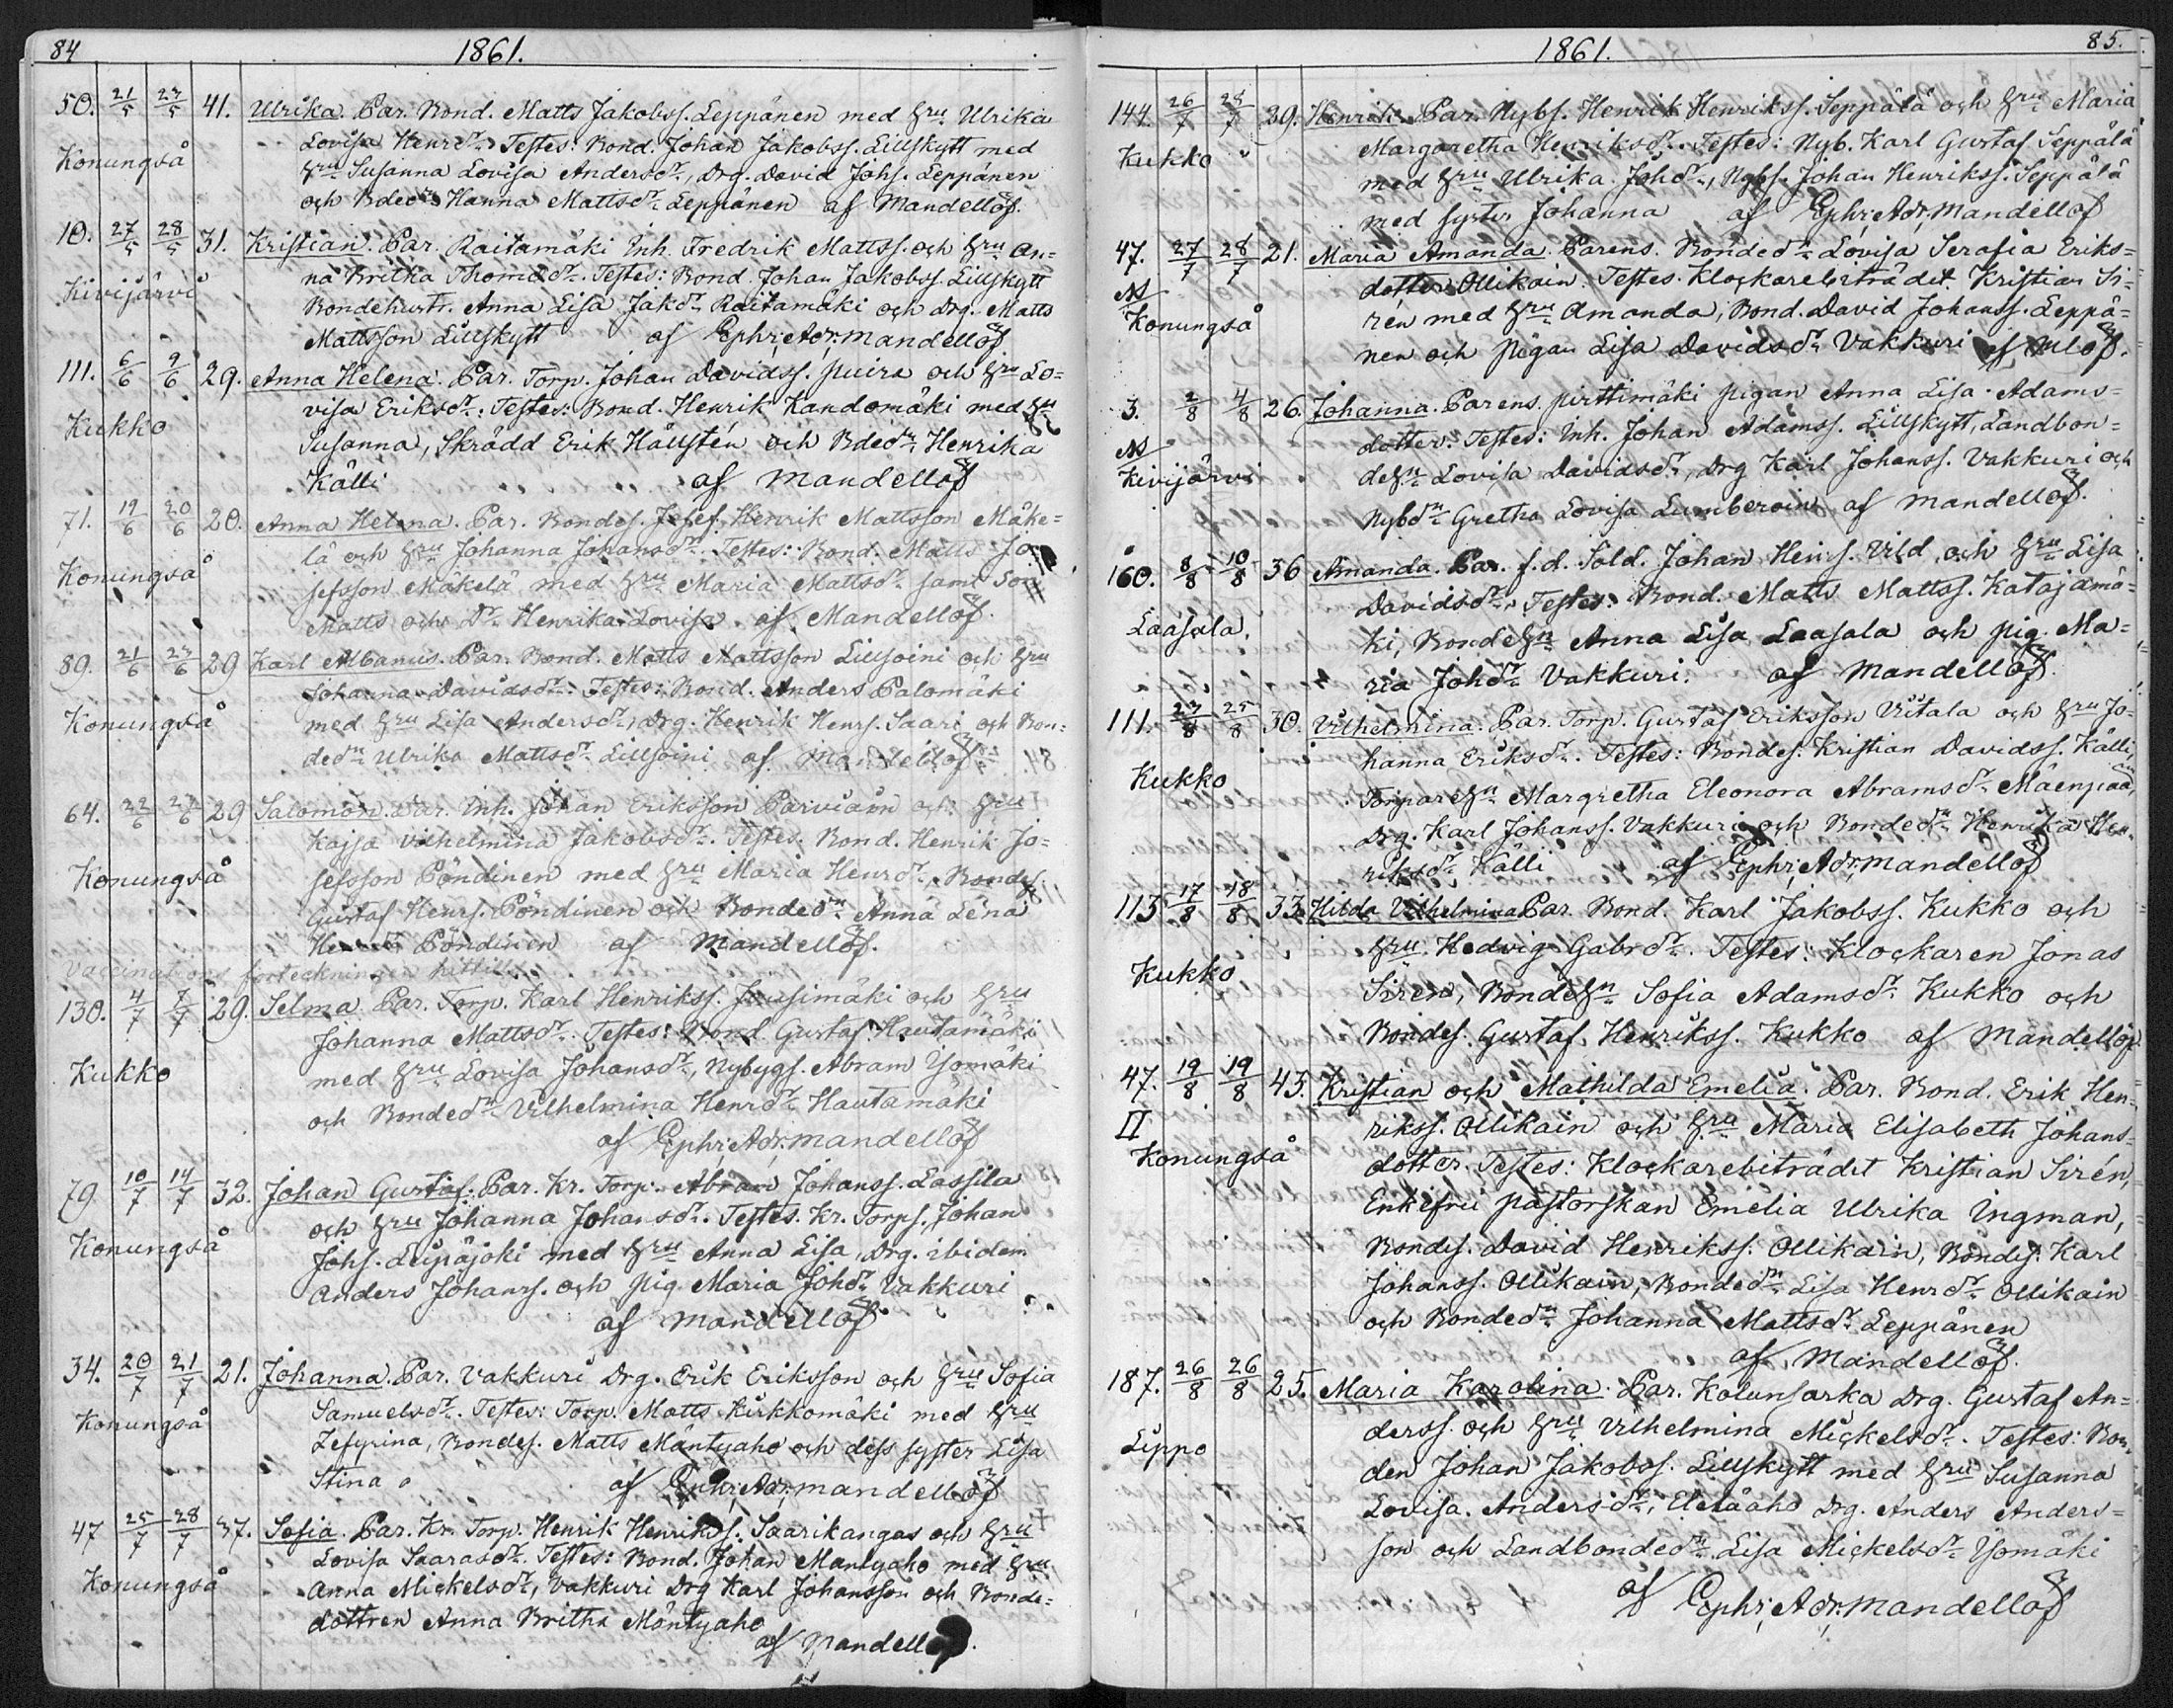 84
1861.
50. 21/5 23/5 41. Ulrika. Par. Bond. Matts Jakobss. Leppänen med Hru Ulrika
Lovisa Henrdr. Testes: Bond. Johan Jakobss. Lillskytt med
Konungså
Hru Susanna Lovisa Andersdr, Drg. David Johs. Leppänen
och Bdedr Hanna Mattsdr Leppänen af Mandellöf.
10. 27/5 28/5 31. Kristian. Par. Raitamäki Inh. Fredrik Mattss. och Hru An=
na Britha Thomasdr. Testes: Bond. Johan Jakobss. Lillskytt
Kivijärvi
Bondehustr. Anna Lisa Jakdr Raitamäki och Drg. Matts
Mattsson Lillskytt af Ephr. Adr. Mandellöf
111. 6/6 9/6 29. Anna Helena. Par. Torp. Johan Davidss. Puira och Hru Lo=
visa Eriksdr. Testes: Bond. Henrik Kandomäki med Hru
Kukko
Susanna, Skrädd Erik Hällstén och Bdedr Henrika
Källi af Mandellöf
71. 19/6 20/6 20. Anna Helena. Par. Bondes. Josef Henrik Mattsson Mäke=
lä och Hru Johanna Johansdr. Testes: Bond. Matts Jo=
Konungså
sefsson Mäkelä med Hru Maria Mattsdr samt Son
Matts och Dr Henrika Lovisa. af Mandellöf.
89. 21/6 23/6 29 Karl Albanus. Par. Bond. Matts Mattsson Lillsoini och Hru
Johanna Davidsdr. Testes: Bond. Anders Palomäki
Konungså
med Hru Lisa Andersdr, Drg. Henrik Henrs. Saari och Bon=
dedr Ulrika Mattsdr Lillsoini af Mandellöf
64. 22/6 27/6 29 Salomon. Par. Inh. Johan Eriksson Parviain och Hru
Kajsa Vilhelmina Jakobsdr. Testes: Bond. Henrik Jo=
Konungså
sefsson Pöndinen med Hru Maria Henrdr Bondes.
Gustaf Henrs. Pöndinen och Bondedr Anna Lena
Pöndinen af Mandellöf.
Vaccinations förteckningen hittills.
130. 4/7 7/7 29. Selma. Par. Torp. Karl Henrikss. Jousimäki och Hru
Johanna Mattsdr. Testes: Bond Gustaf Hautamäki
Kukko
med Hru Lovisa Johansdr, Nybygs. Abram Yomäki
och Bondedr Vilhelmina Henrdr Hautamäki
af Ephr. Adr. Mandellöf
79. 10/7 14/7 32. Johan Gustaf. Par. Kr. Torp. Abram Johanss. Lassila
och Hru Johanna Johansdr. Testes. Kr. Torps. Johan
Konungså
Johs. Leipäjoki med Hru Anna Lisa, Drg. ibidem
Anders Johanss. och pig. Maria Johdr Vakkuri
af Mandellöf
34. 20/7 21/7 21. Johanna. Par. Vakkuri Drg. Erik Eriksson och Hru Sofia
Samuelsdr. Testes: Torp. Matts Kirkkomäki med Hru
Konungså
Zefyrina, Bondes. Matts Mäntyaho och dess syster Lisa
Stina af Ephr. Adr. Mandellöf
47 25/7 28/7 37. Sofia. Par. Kr. Torp. Henrik Henrikss. Saarikangas och Hru
Lovisa Saarasdr. Testes: Bond. Johan Mäntyaho med Hru
Konungså
Anna Mickelsdr, Vakkuri Drg Karl Johansson och Bonde=
dottren Anna Britha Mäntyaho
af Mandellöf.
1861.
85.
144. 26/7 28/7 29. Henrik. Par. Nybs. Henrik Henrikss. Seppälä och Hru Maria
Margaretha Henriksdr. Testes: Nyb. Karl Gustaf Seppälä
Kukko
med Hru Ulrika Johdr, Nybs. Johan Henrikss. Seppälä
med syster Johanna af Ephr. Adr. Mandellöf
47. 27/7 28/7 21. Maria Amanda. Parens. Bondedr Lovisa Serafia Eriks=
dotter Ollikain. Testes. Klockarebiträdet Kristian Si=
Konungså
ren med Hru Amanda, Bond. David Johanss. Leppä=
nen och Pigan Lisa Davidsdr Vakkuri af Mlöf.
3. 2/8 4/8 26. Johanna. Parens. Pirttimäki pigan Anna Lisa Adams=
dotter. Testes: Inh. Johan Adamss. Lillskytt, Landbon=
Kivijärvi
deHu Lovisa Davidsdr, Drg Karl Johanss. Vakkuri och
Nybdr Gretha Lovisa Lumberoin af Mandellöf.
160. 8/8 10/8 36 Amanda. Par. f.d. Sold. Johan Henrs. Vild och Hru Lisa
Davidsdr. Testes: Bond. Matts Mattss. Katajamä=
Laasala.
ki, BondeHu Anna Lisa Laasala och pig. Ma=
ria Johdr Vakkuri. af Mandellöf.
111. 23/8 25/8 30. Vilhelmina. Par. Torp. Gustaf Eriksson Viitala och Hru Jo=
hanna Eriksdr. Testes: Bondes. Kristian Davidss. Källi,
Kukko
TorpareHu Margretha Eleonora Abramsdr Mäenpää,
Drg. Karl Johanss. Vakkuri och Bondedr Henrika Hen=
riksdr Källi af Ephr. Adr. Mandellöf
113. 17/8 18/8 33. Hilda Vilhelmina Par. Bond. Karl Jakobss. Kukko och
Hru Hedvig Gabrdr. Testes: Klockaren Jonas
Kukko
Siren, BondeHu Sofia Adamsdr Kukko och
Bondes. Gustaf Henrikss. Kukko af Mandellöf
47. 19/8 19/8 43. Kristian och Mathilda Emelia. Par. Bond. Erik Hen=
II
rikss. Ollikain och Hru Maria Elisabeth Johans=
Konungså
dotter. Testes: Klockarebiträdet Kristian Sirén,
Enkefru pastorskan Emelia Ulrika Ingman,
Bondes. David Henrikss. Ollikain, Bondes. Karl
Johanss. Ollikain, Bondedr Lisa Henrdr Ollikain
och Bondedr Johanna Mattsdr Leppänen
af Mandellöf.
187. 26/8 26/8 25. Maria Karolina. Par. Kolunsarka Drg. Gustaf An=
derss. och Hru Vilhelmina Mickelsdr. Testes: Bon=
Lippo
den Johan Jakobss. Lillskytt med Hru Susanna
Lovisa Andersdr, Eteläaho Drg. Anders Anders=
son och Landbondedr Lisa Mickelsdr Yomäki
af Ephr. Adr. Mandellöf